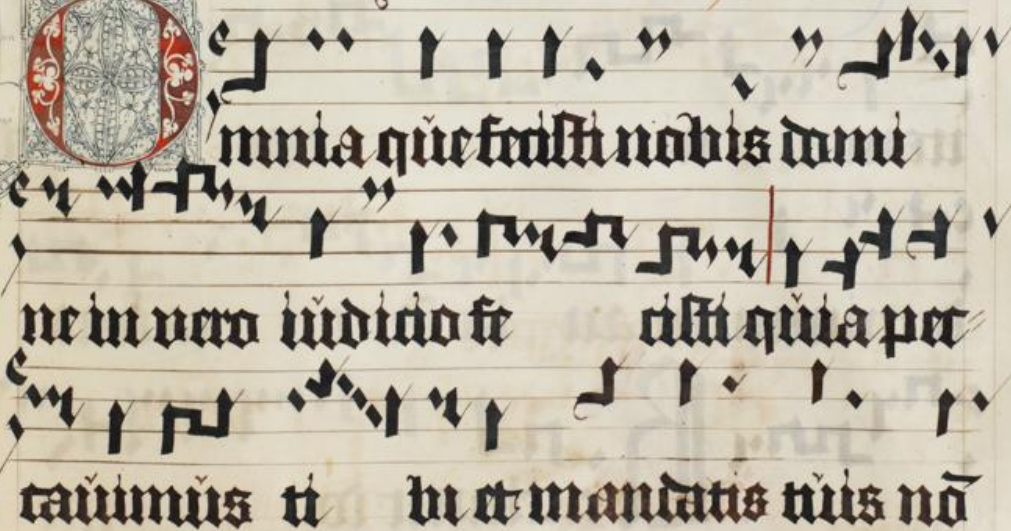 Omnia que fecisti nobis domi
ne in vero iudicio fe cisti quia pec-
cauimus ti bi et mandatis tuis nō